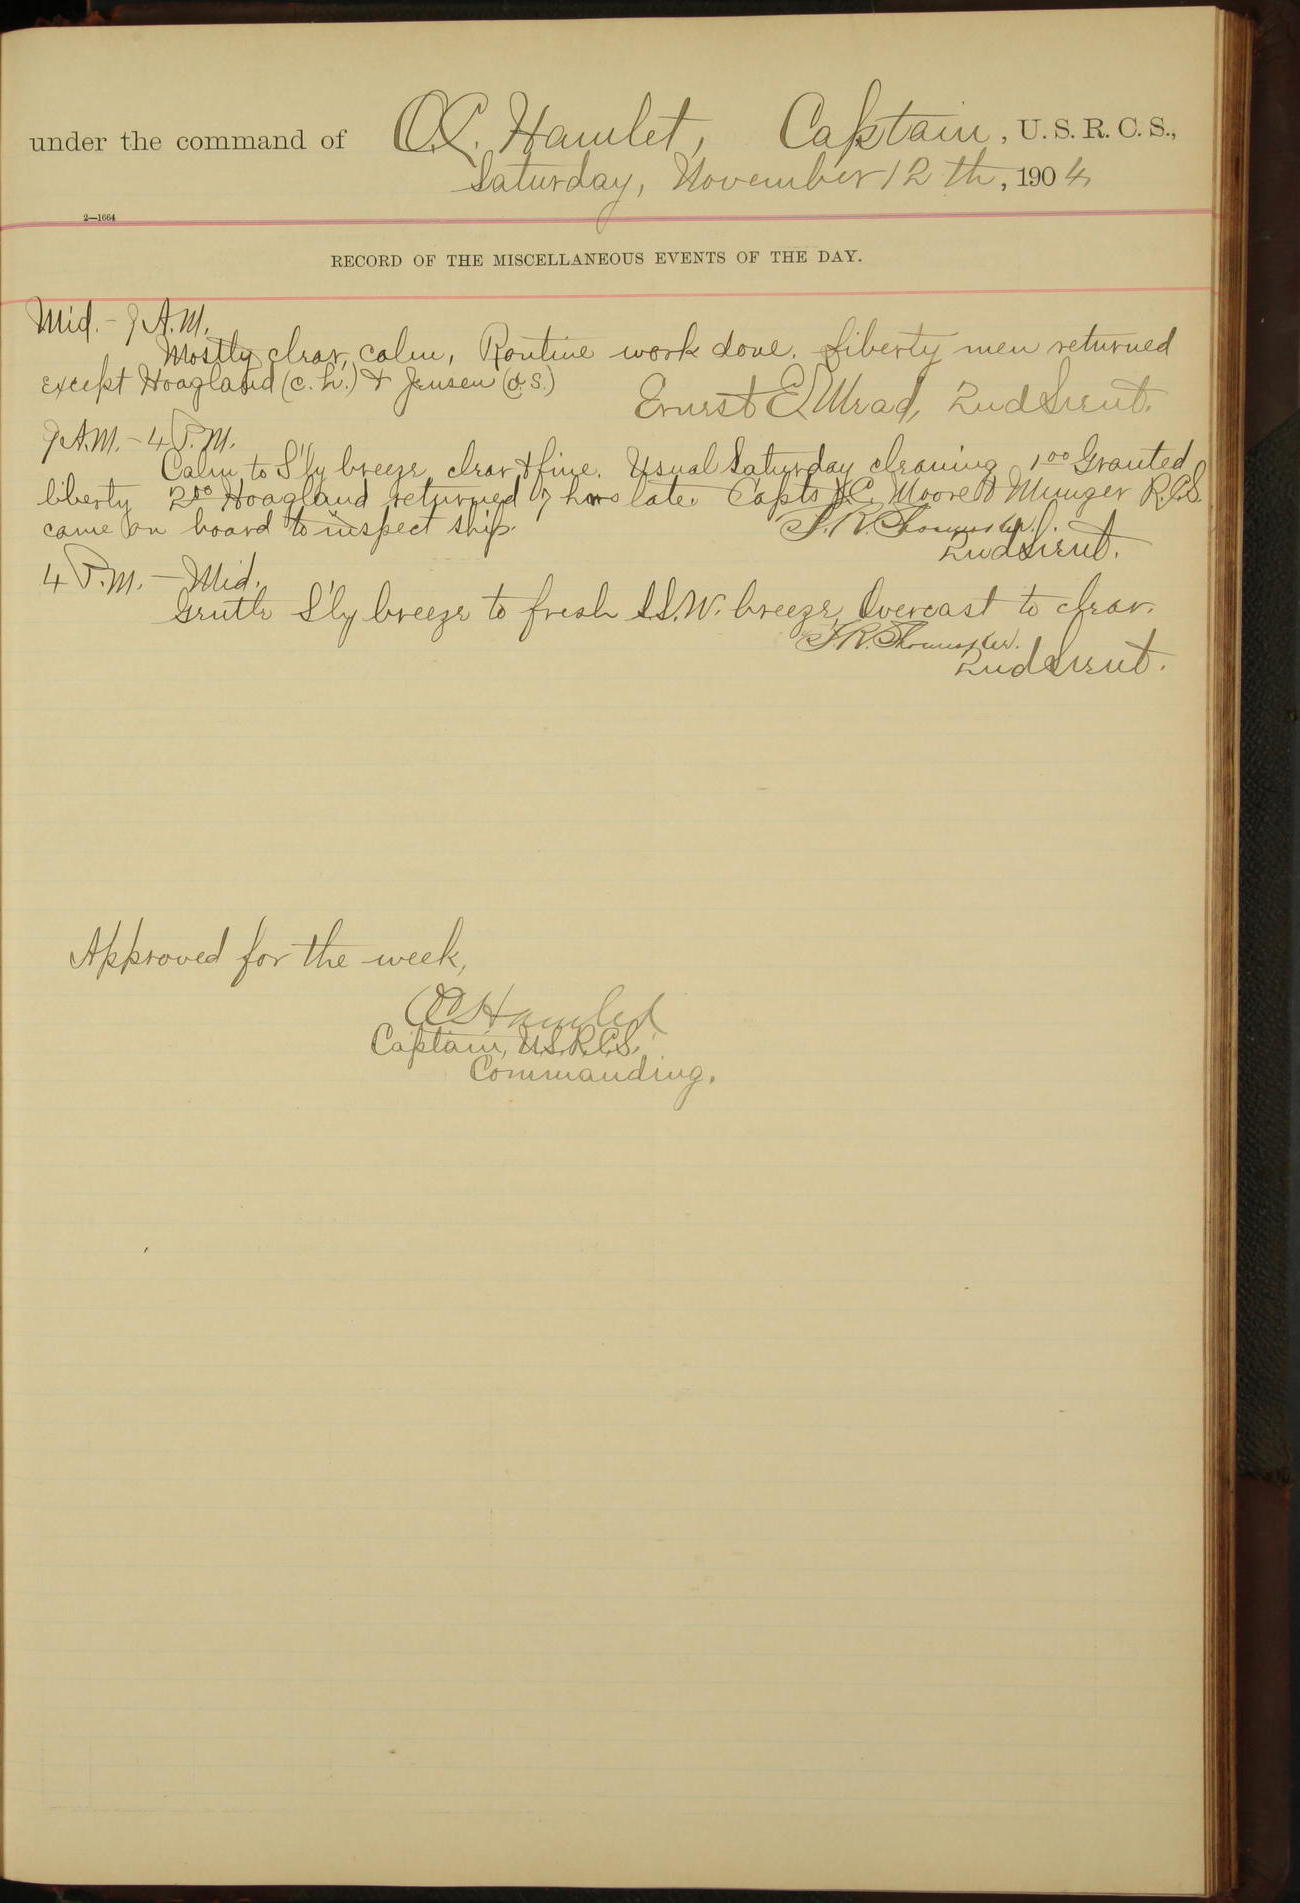 under the command of O.C. Hamlet, Captain, U. S. R. C. S.,
Saturday, November 12th, 1904
2—1664
RECORD OF THE MISCELLANEOUS EVENTS OF THE DAY.
Mid. - 9 A.M.
Mostly clear, calm, Routine work done. Liberty men returned
except Hoagland (C. H.) & Jensen (O.S.)
Ernest E. Mead, 2nd Lieut.
9 A.M. - 4 P.M.
Calm to S'ly breeze, clear & fine. Usual Saturday cleaning 1 00 Granted
liberty 2 00 Hoagland returned 7 hrs late. Capts J.C. Moore & Munger R.C.S.
came on board to inspect ship.
2nd Lieut.
4 P.M. - Mid.
Gentle S'ly breeze to fresh S.S.W. breeze, Overcast to clear.
2nd Lieut.
Approved for the week,
O C Hamlet
Captain, U.S.R.C.S.
Commanding.